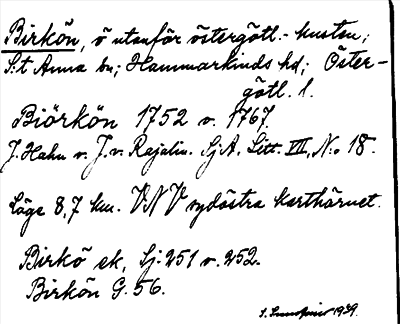 Birkön, ö utanför östergötl.-kusten;
S:t Anna sn; Hammarkinds hd; Öster-
götl. l.
Biörkön 1752 o. 1767,
J. Hahn o. J. v. Rajalin. Sj A. Litt. VII, No 18.
Läge 8,7 km. VNV sydöstra karthörnet.
Birkö sk, Sj. 251 o. 252.
Birkön G. 56.
1939.